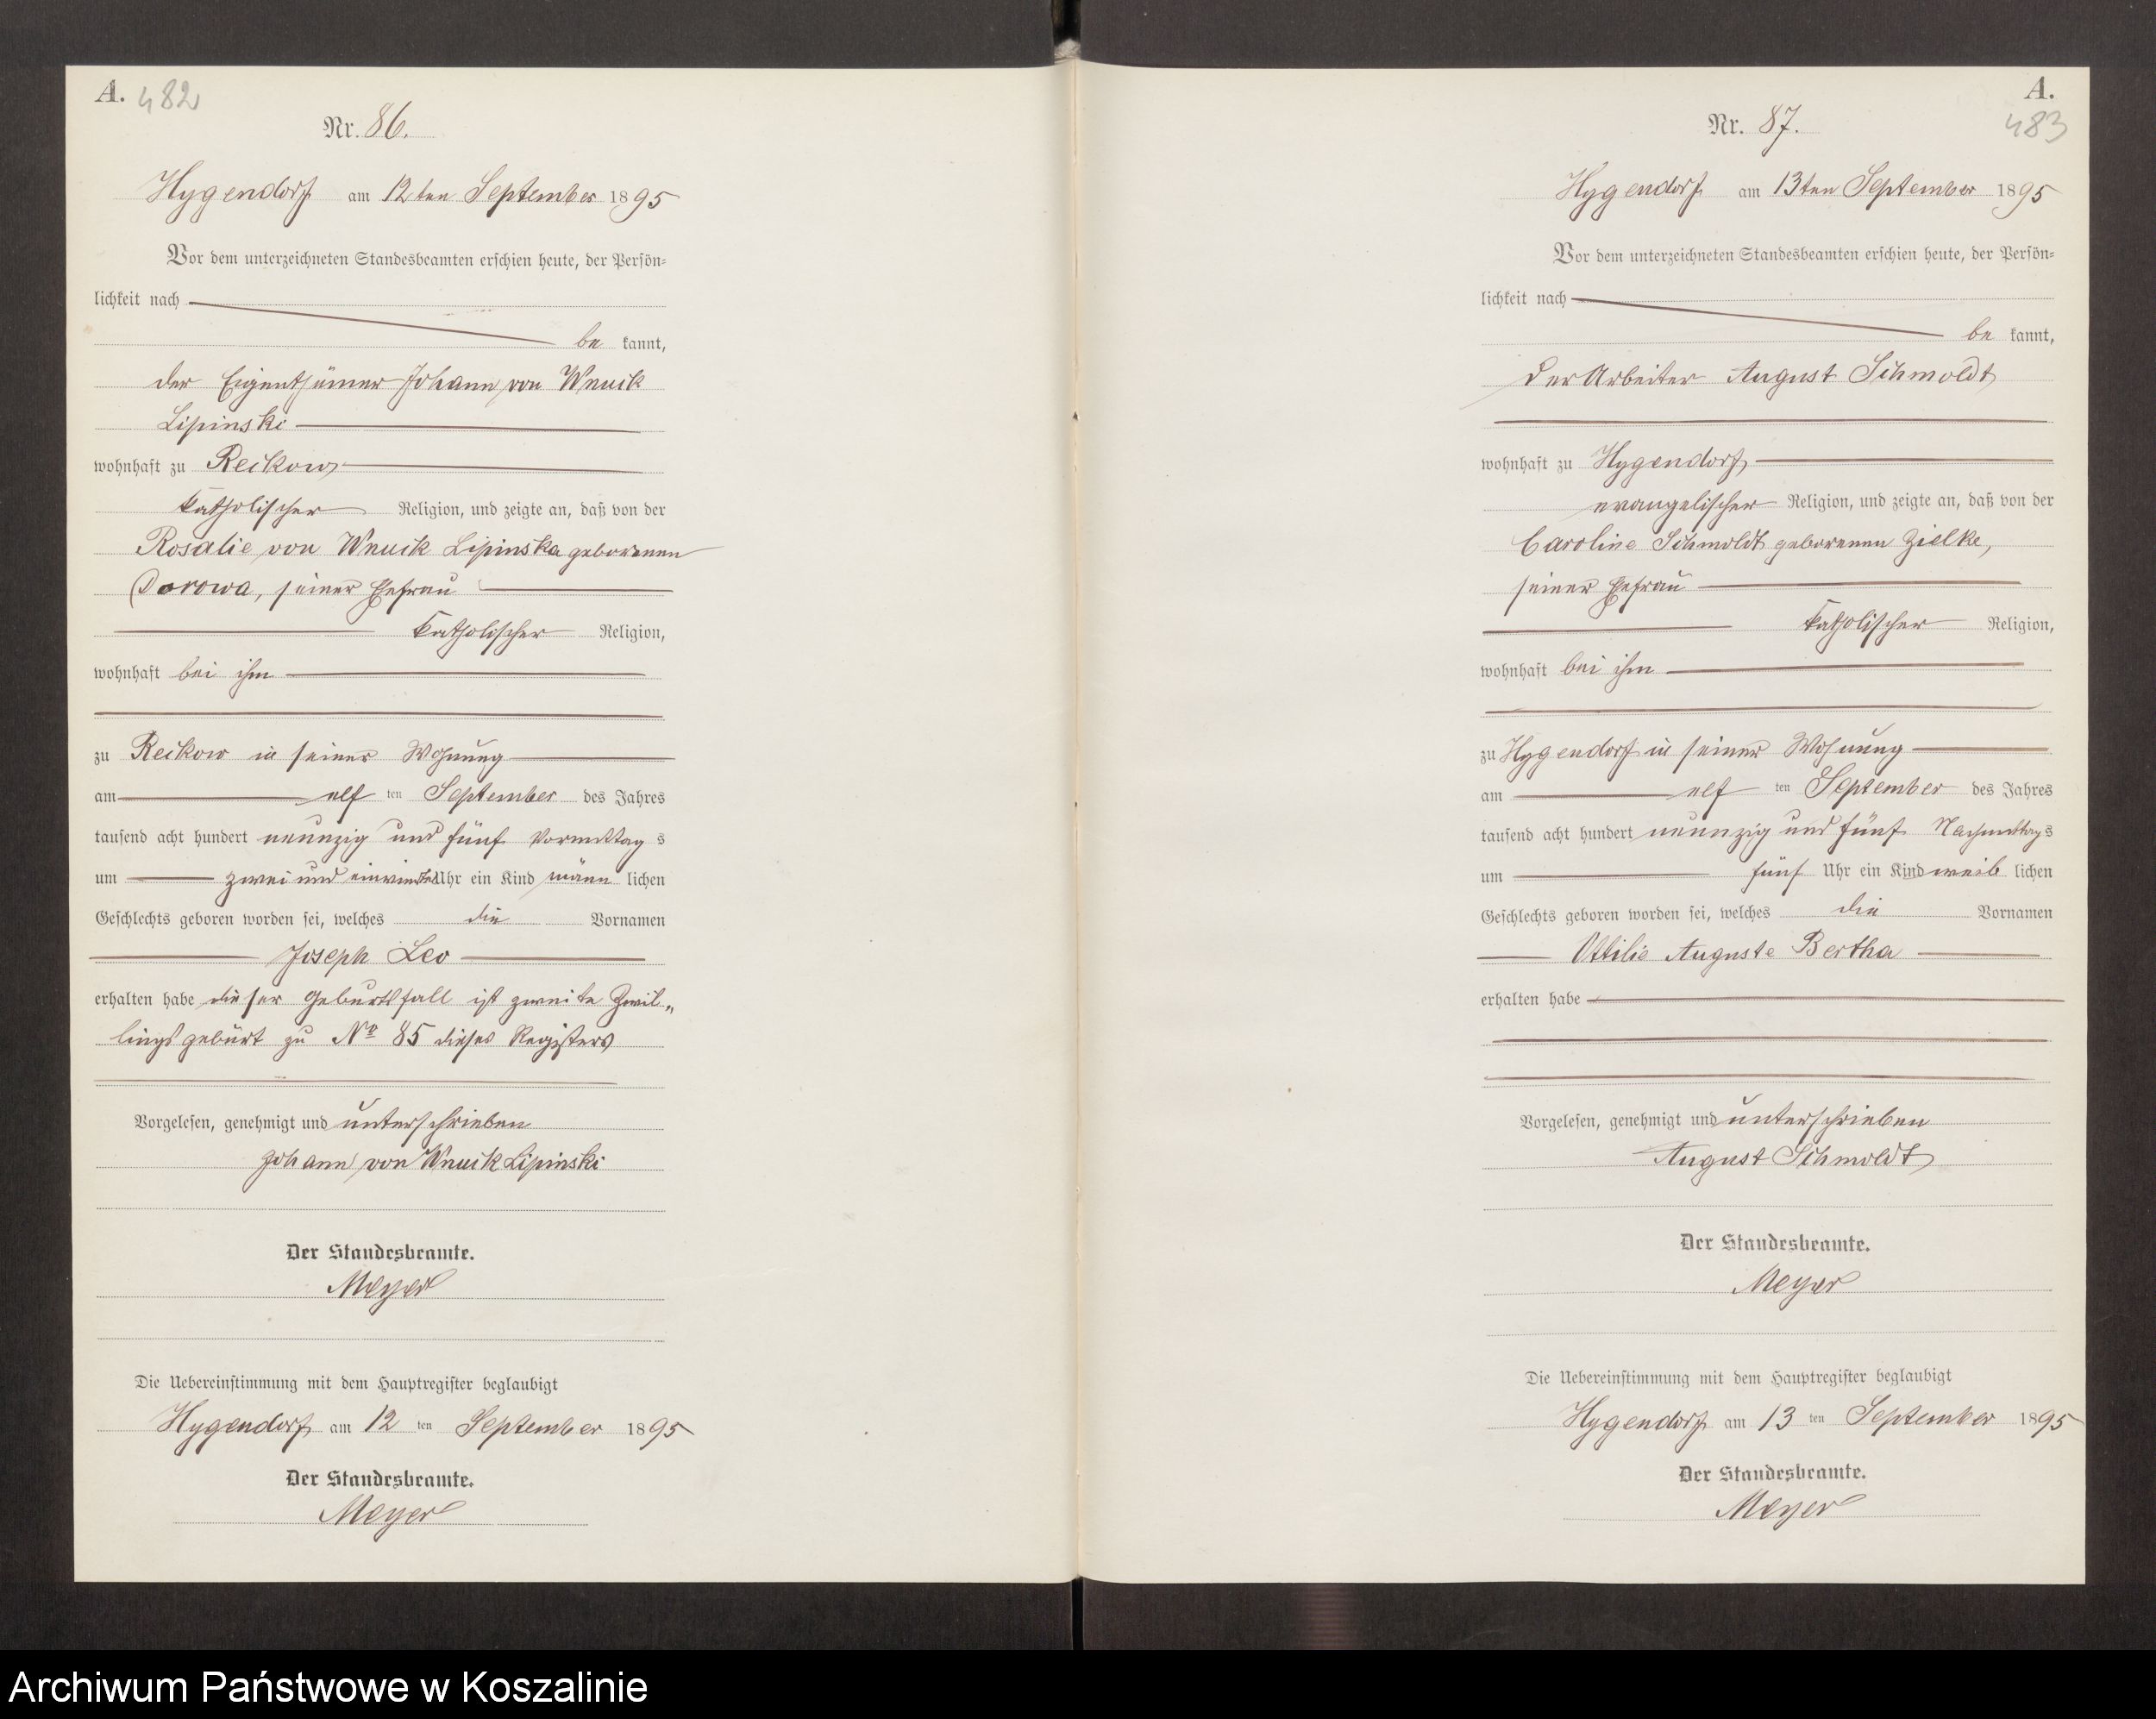 A. 482
Nr. 86.
Hygendorf am 12ten September 1895
Vor dem unterzeichneten Standesbeamten erschien heute, der Persön-
lichkeit nach
be kannt,
der Eigenthümer Johann von Wnuck
Lipinski
wohnhaft zu Reckow
katholischer Religion, und zeigte an, daß von der
Rosalie von Wnuck Lipinska geborenen
Dorowa, seiner Ehefrau
katholischer Religion,
wohnhaft bei ihm
zu Reckow in seiner Wohnung
am elf ten September des Jahres
tausend acht hundert neunzig und fünf Vormittag s
um zwei und einviertel Uhr ein Kind männ lichen
Geschlechts geboren worden sei, welches die Vornamen
Joseph Leo
erhalten habe dieser Geburtsfall ist zweite Zwil-
lingsgeburt zu No 85 dieses Registers
Vorgelesen, genehmigt und unterschrieben
Johann von Wnuck Lipinski
Der Standesbeamte.
Meyer
Die Uebereinstimmung mit dem Hauptregister beglaubigt
Hygendorf am 12 ten September 1895
Der Standesbeamte.
Meyer
A.
483
Nr. 87.
Hygendorf am 13ten September 1895
Vor dem unterzeichneten Standesbeamten erschien heute, der Persön-
lichkeit nach
be kannt,
der Arbeiter August Schmoldt
wohnhaft zu Hygendorf
evangelischer Religion, und zeigte an, daß von der
Caroline Schmoldt geborenen Zielke,
seiner Ehefrau
katholischer Religion,
wohnhaft bei ihm
zu Hygendorf in seiner Wohnung
am elf ten September des Jahres
tausend acht hundert neunzig und fünf Nachmittag s
um fünf Uhr ein Kind weib lichen
Geschlechts geboren worden sei, welches die Vornamen
Ottilie Auguste Bertha
erhalten habe
Vorgelesen, genehmigt und unterschrieben
August Schmoldt
Der Standesbeamte.
Meyer
Die Uebereinstimmung mit dem Hauptregister beglaubigt
Hygendorf am 13 ten September 1895
Der Standesbeamte.
Meyer
Archiwum Państwowe w Koszalinie